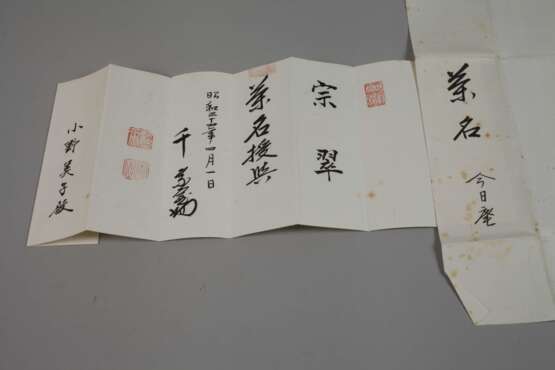 茶名
今日庵
宗翠
茶名授與
昭和 年四月一日
千
小野美子殿